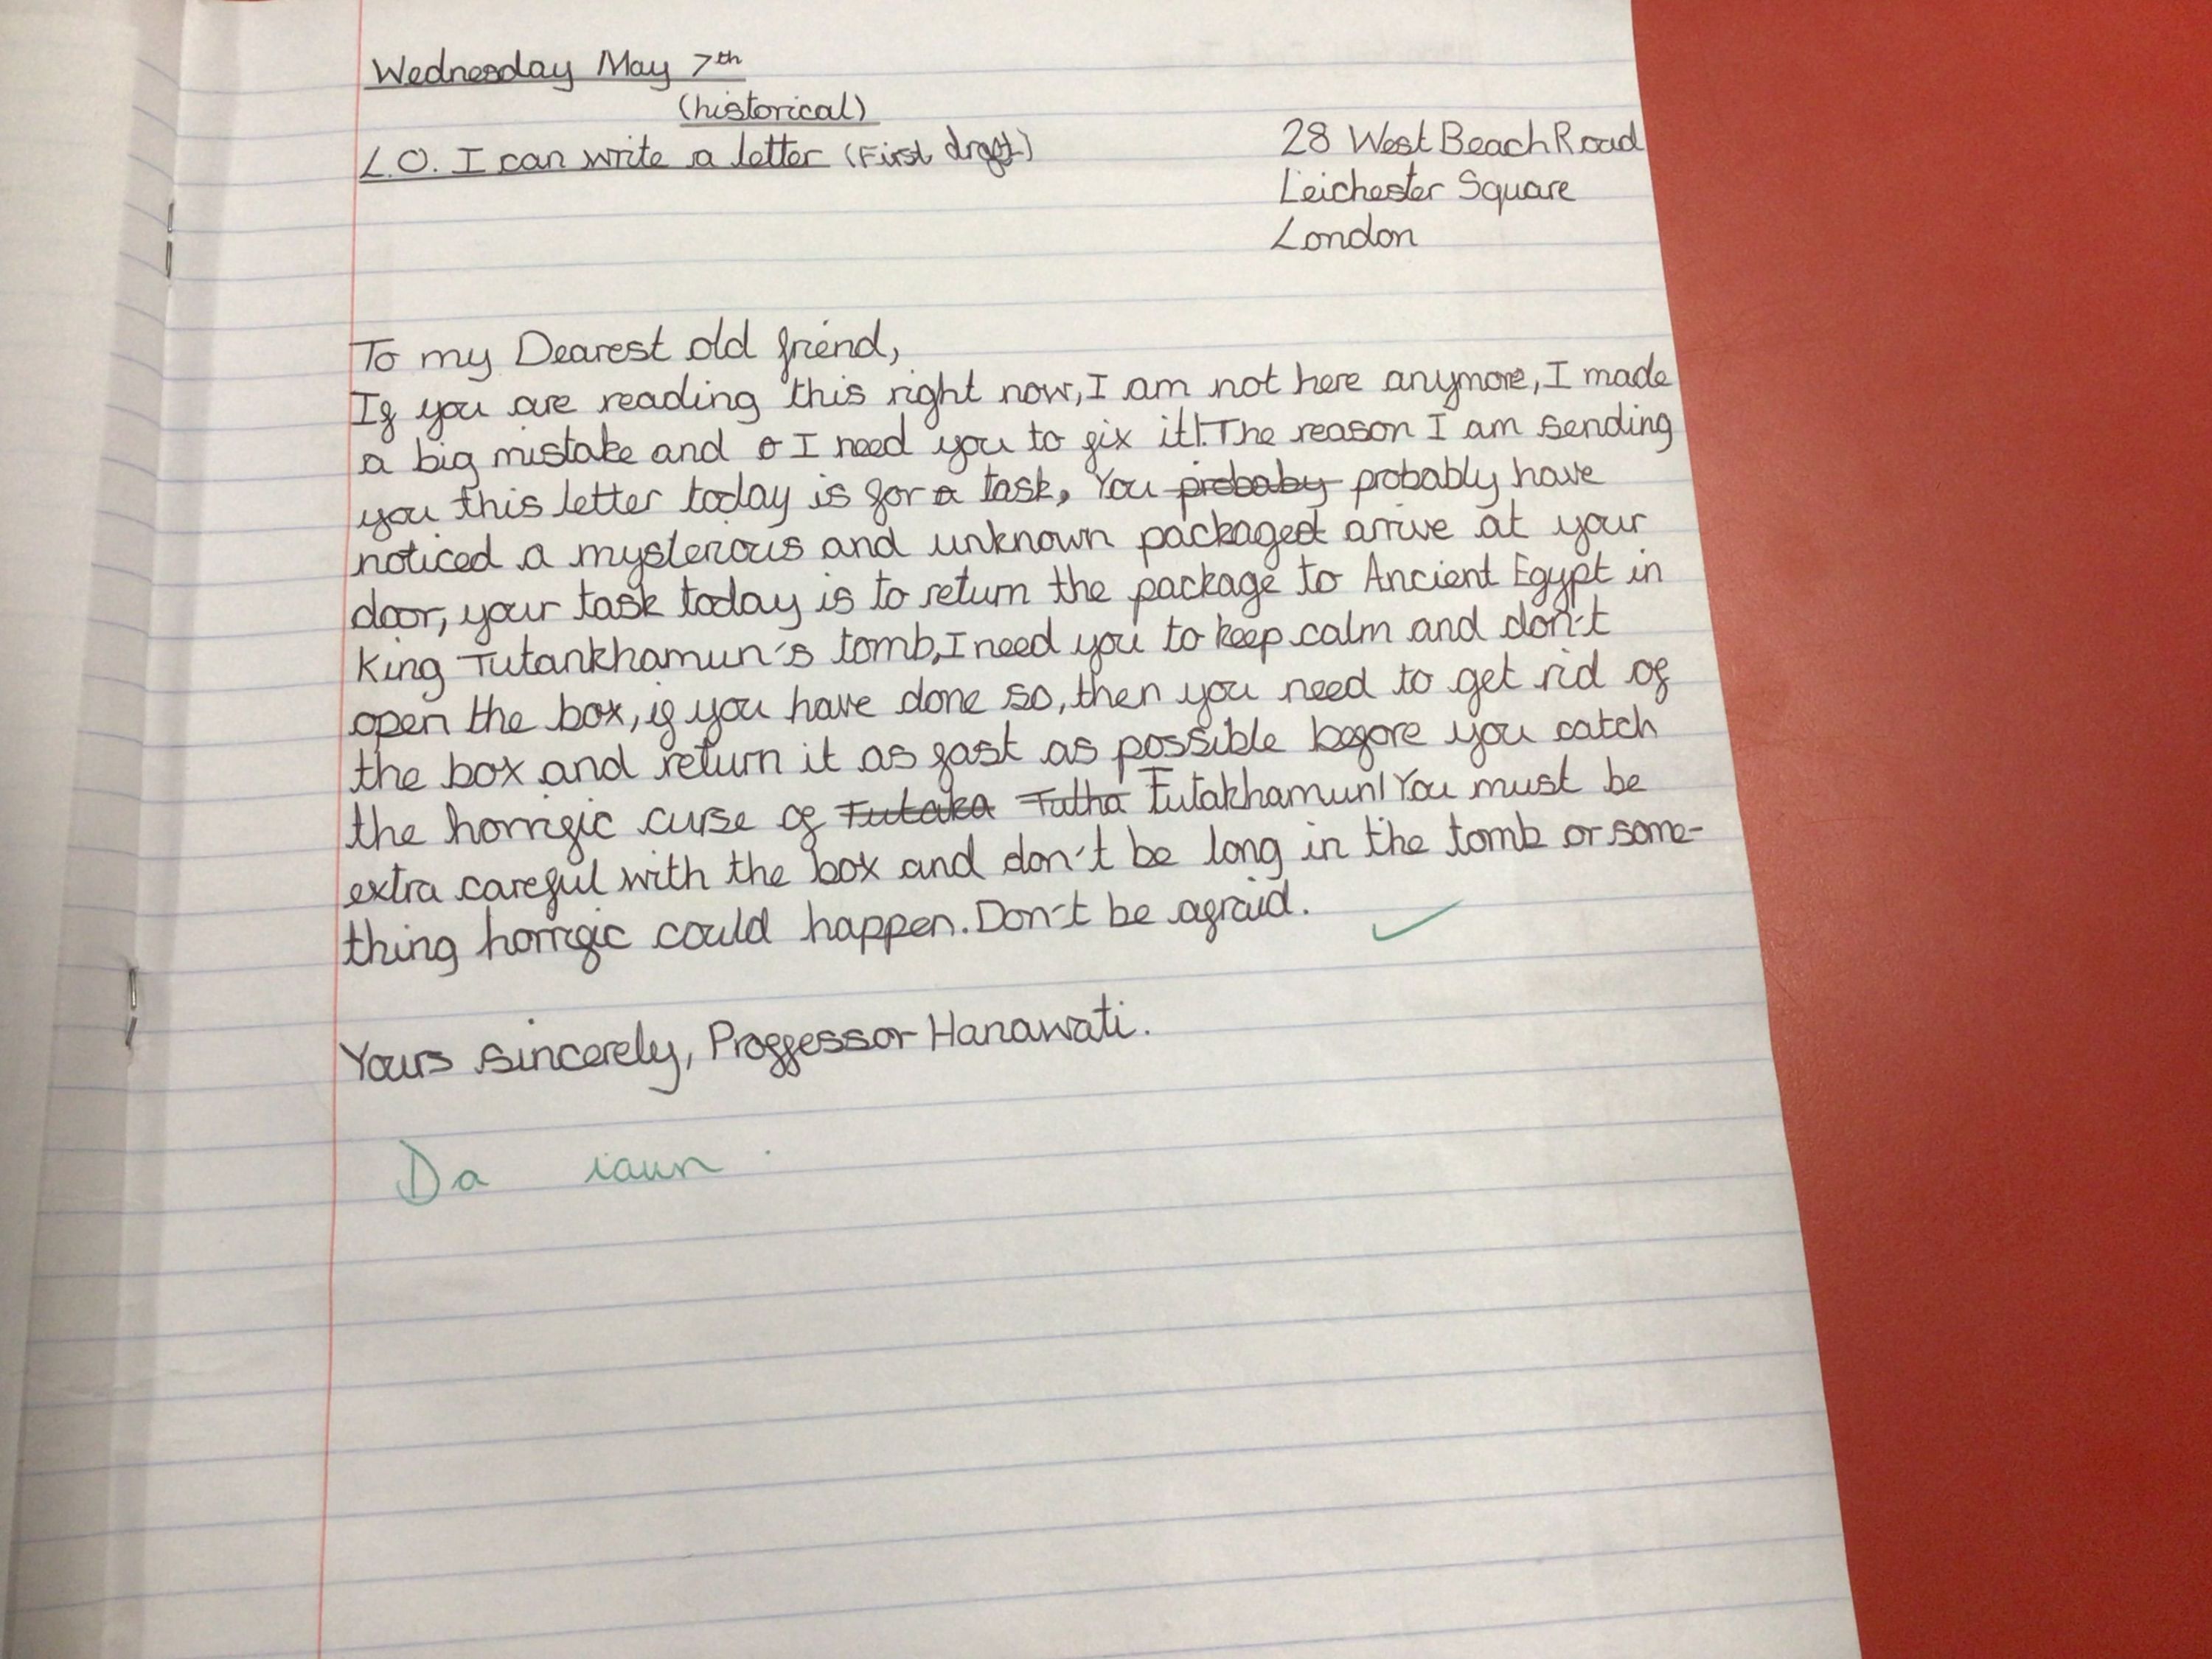 Wednesday May 7th
(historical)
L.O. I can write a letter (First draft)
28 West Beach Road
Leichester Square
London
To my Dearest old friend,
If you are reading this right now, I am not here anymore, I made
a big mistake and I need you to fix it!. The reason I am sending
you this letter today is for a task, You probaby probably have
noticed a mysterious and unknown packaged arrive at your
door, your task today is to return the package to Ancient Egypt in
King Tutankhamun's tomb, I need you to keep calm and don't
open the box, if you have done so, then you need to get rid of
the box and return it as fast as possible before you catch
the horrific curse of Tutaka Tutha Tutakhamun! You must be
extra careful with the box and don't be long in the tomb or some-
thing horrific could happen. Don't be afraid.
Yours sincerely, Proffessor Hanawati.
Da iawn